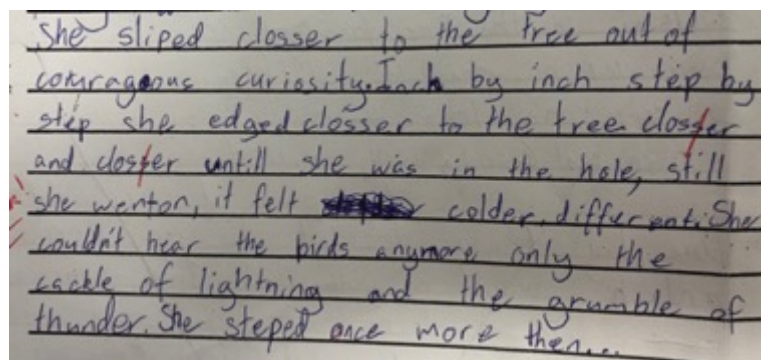 She sliped closser to the tree out of
couragous curiosity. Inch by inch step by
step she edged closser to the tree closser
and closser untill she was in the hole, still
she wenton, it felt colder, different. She
couldn't hear the birds anymore only the
cackle of lightning and the grumble of
thunder. She steped once more then...